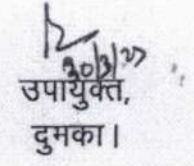 30/3/27
उपायुक्त,
दुमका।